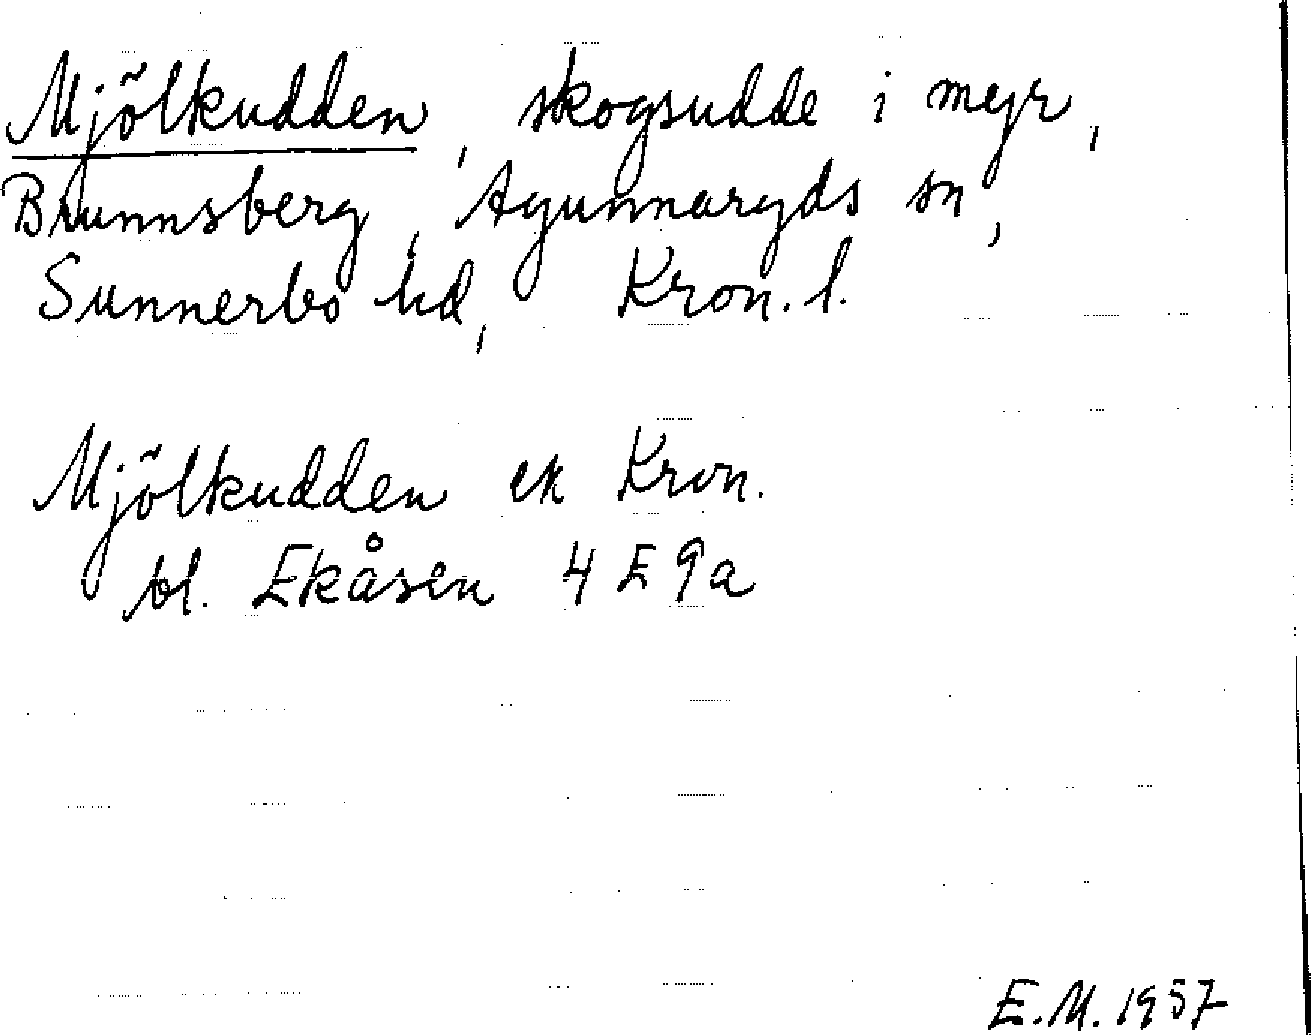 Mjölkudden, skogsudde i myr,
Brunnsberg, Agunnaryds sn,
Sunnerbo hd, Kron. l.
Mjölkudden ek Kron.
bl. Ekåsen 4 E 9a
E.M. 1957